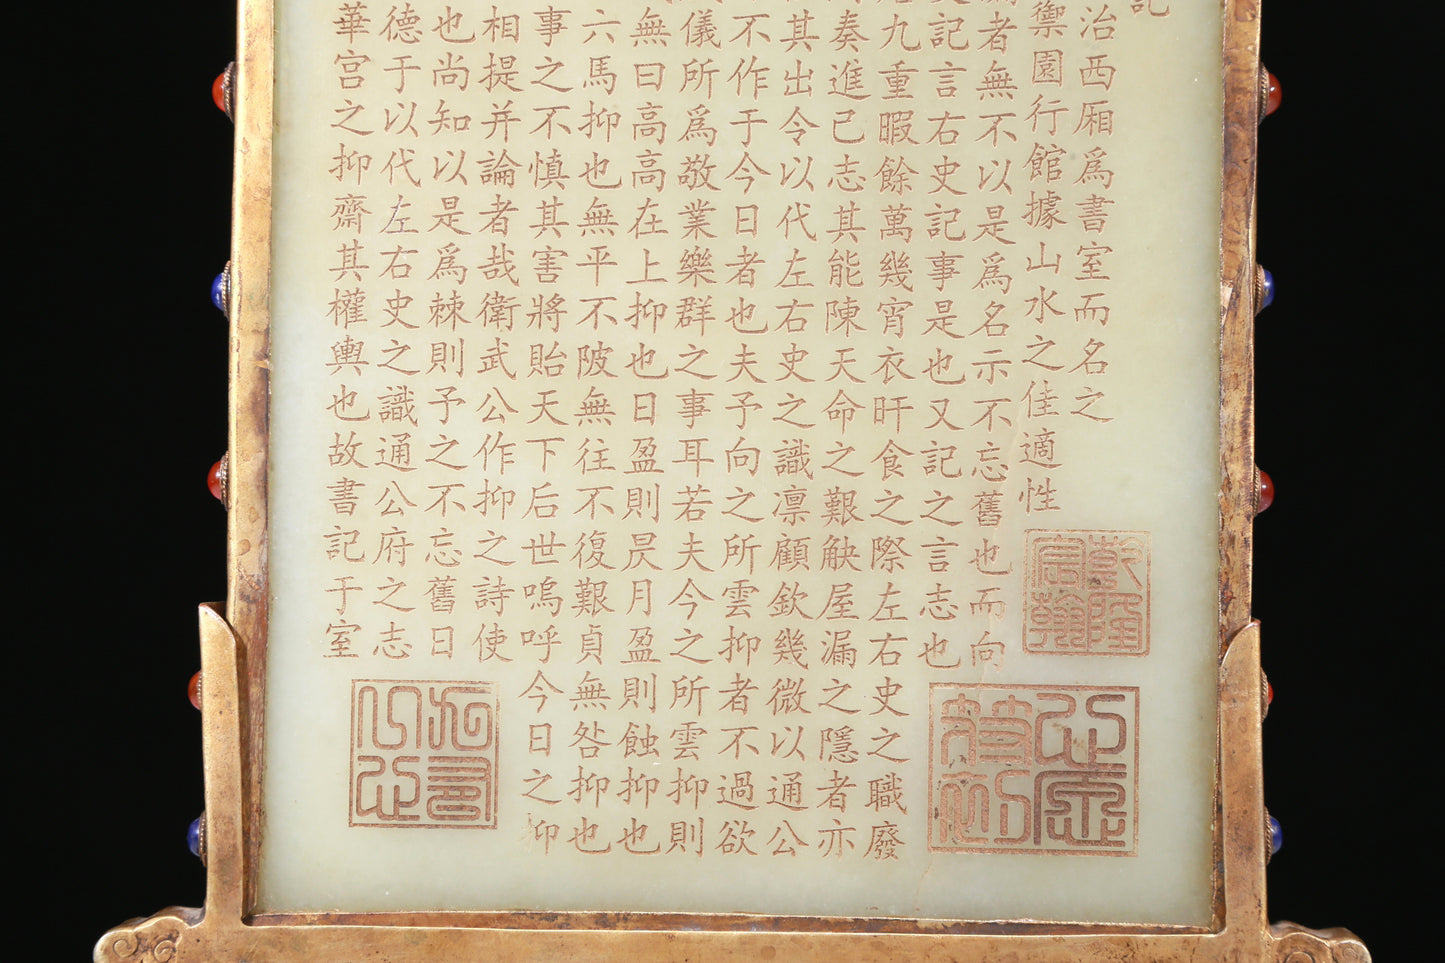 記
治西厢爲書室而名之
禦園行館據山水之佳適性
者無不以是爲名示不忘舊也而向
史記言右史記事是也又記之言志也
九重暇餘萬幾宵衣旰食之際左右史之職廢
奏進己志其能陳天命之艱觖屋漏之隱者亦
其出令以代左右史之識凛顧欽幾微以通公
不作于今日者也夫予向之所雲抑者不過欲
儀所爲敬業樂群之事耳若夫今之所雲抑則
無曰高高在上抑也日盈則昃月盈則蝕抑也
六馬抑也無平不陂無往不復艱貞無咎抑也
事之不慎其害將貽天下后世嗚呼今日之抑
相提并論者哉衛武公作抑之詩使
也尚知以是爲棘則予之不忘舊日
德于以代左右史之識通公府之志
華宮之抑齋其權輿也故書記于室
乾隆宸翰